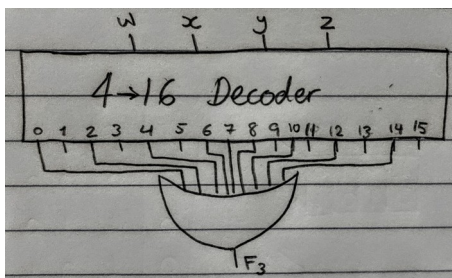 w x y z
4→16 Decoder
0 1 2 3 4 5 6 7 8 9 10 11 12 13 14 15
F₃